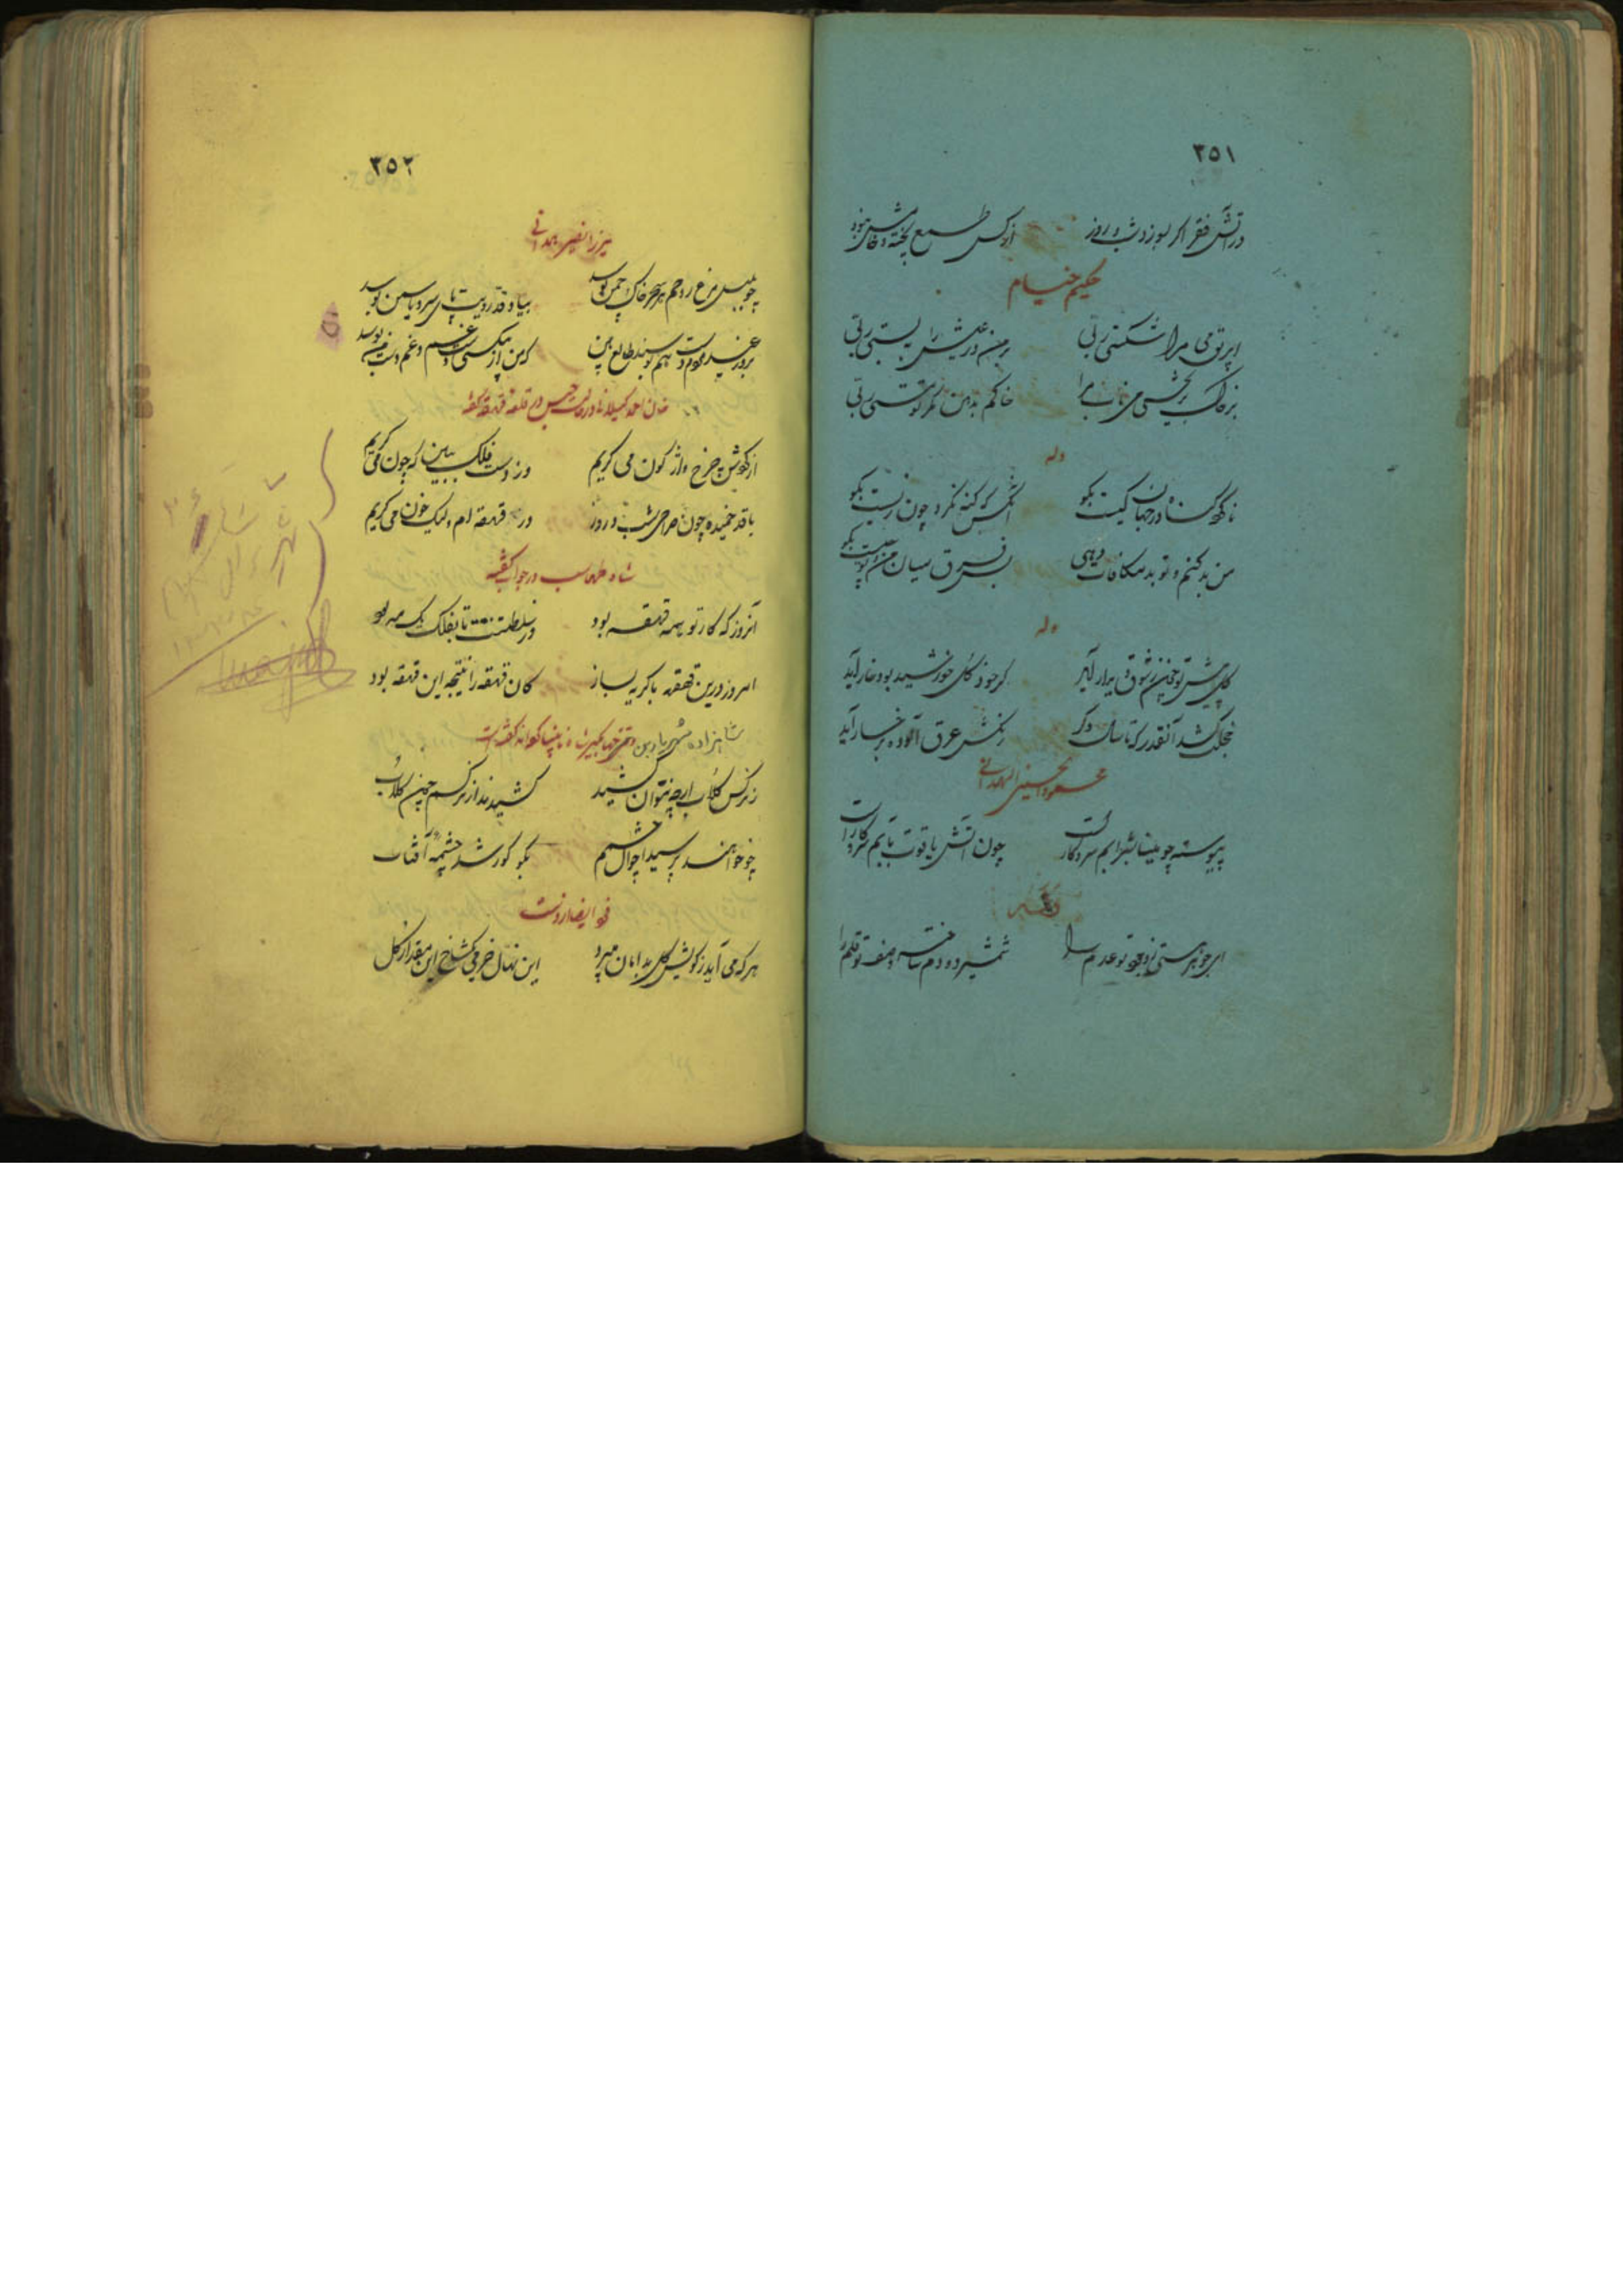 ٣٥١
در آتش فقر اگر بسوزد شب و روز از کس طمع پخته و خامش نبود
حکیم خیام
ابریق می مرا شکستی ربی بر من در عیش را ببستی ربی
بر خاک بریختی می ناب مرا خاکم بدهن مگر تو مستی ربی
وله
ناکرده گناه در جهان کیست بگو آنکس که گنه نکرد چون زیست بگو
من بد کنم و تو بد مکافات دهی پس فرق میان من و تو چیست بگو
وله
گل پیش تو خنده گر خود گل خورشید بود خار آید
خجلت کشد آنقدر که تا سال دگر رنگش عرق آلوده برخسار آید
مسعود الحسینی الهمدانی
پیوسته چو مینا بشرابم سر و کار است چون آتش یاقوت بآبم سر و کار است
ای جوهر هستی ز وجود تو عدم را شمشیر دو دم ساخته وصف تو قلم را
٣٥٢
میرزا نصیر همدانی
چو بلبل مرغ روحم هر سحر خاک چمن بوسد بیاد قد و رویت پای سرو و یاسمن بوسد
بروز عید مردم دست هم بوسند طالع بین که من از بیکسی دست غم و غم دست من بوسد
خان احمد گیلانی در حالت حبس در قلعه قهقهه گفته
از گردش چرخ واژگون می گریم وز دست فلک ببین که چون می گریم
با قد خمیده چون صراحی شب و روز در قهقهه ام ولیک خون می گریم
شاه طهماسب در جواب گفته
آنروز که کار تو همه قهقهه بود در سلطنتت تا بفلک یک مهه بود
امروز درین قهقهه با گریه بساز کان قهقهه را نتیجه این قهقهه بود
شاهزاده شهریار بن جهانگیر شاه نابینا گفته است
ز نرگس گلاب ارچه نتوان کشید کشیدند از نرگسم چین گلاب
چو خواهند پرسید احوال چشمم بگو کور شد چشمه آفتاب
هر که می آید ز کویش گل بدامان میرود این نهال خرمی یکشاخ این مقدار گل